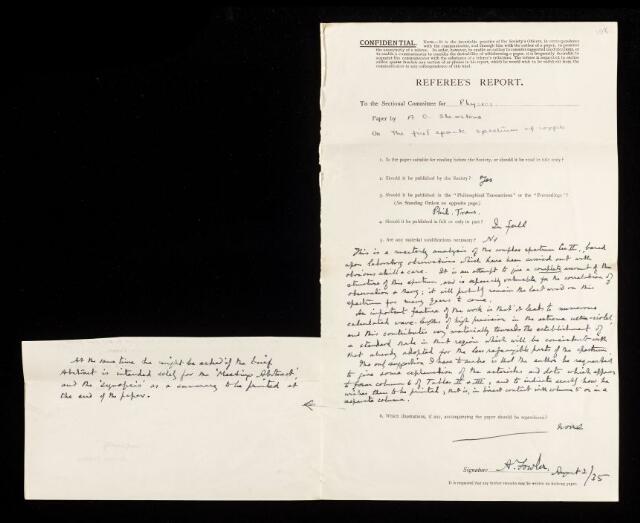 CONFIDENTIAL.
REFEREE'S REPORT.
To the Sectional Committee for Physics
Paper by A. G. Shenstone
On The first spark spectrum of copper
1. Is the paper suitable for reading before the Society, or should it be read in title only?
2. Should it be published by the Society? Yes
3. Should it be published in the "Philosophical Transactions" or the "Proceedings"?
(See Standing Orders on opposite page.)
Phil. Trans.
4. Should it be published in full or only in part? In full
5. Are any material modifications necessary? No
This is a masterly analysis of the complex spectrum Cu II, based
upon laboratory observations which have been carried out with
obvious skill & care. It is an attempt to give a complete account of the
structure of this spectrum, and is especially valuable for the correlation of
observation & theory; it will probably remain the last word on this
spectrum for many years to come.
An important feature of the work is that it leads to numerous
calculated wave-lengths of high precision in the extreme ultra-violet,
and thus contributes very materially towards the establishment of
a standard scale in that region which will be consistent with
that already adopted for the less refrangible parts of the spectrum.
The only suggestion I have to make is that the author be requested
to give some explanation of the asterisks and dots which appear
in column 6 of Tables II & III, and to indicate exactly how he
wishes them to be printed, that is, in direct contact with column 5 or in a
separate column.
At the same time he might be asked if the brief
Abstract is intended solely for the "Meetings Abstract"
and the "synopsis" as a summary to be printed at
the end of the paper.
6. Which illustrations, if any, accompanying the paper should be reproduced?
none
Signature A. Fowler, August 2/35
It is requested that any further remarks may be written on dividing paper.